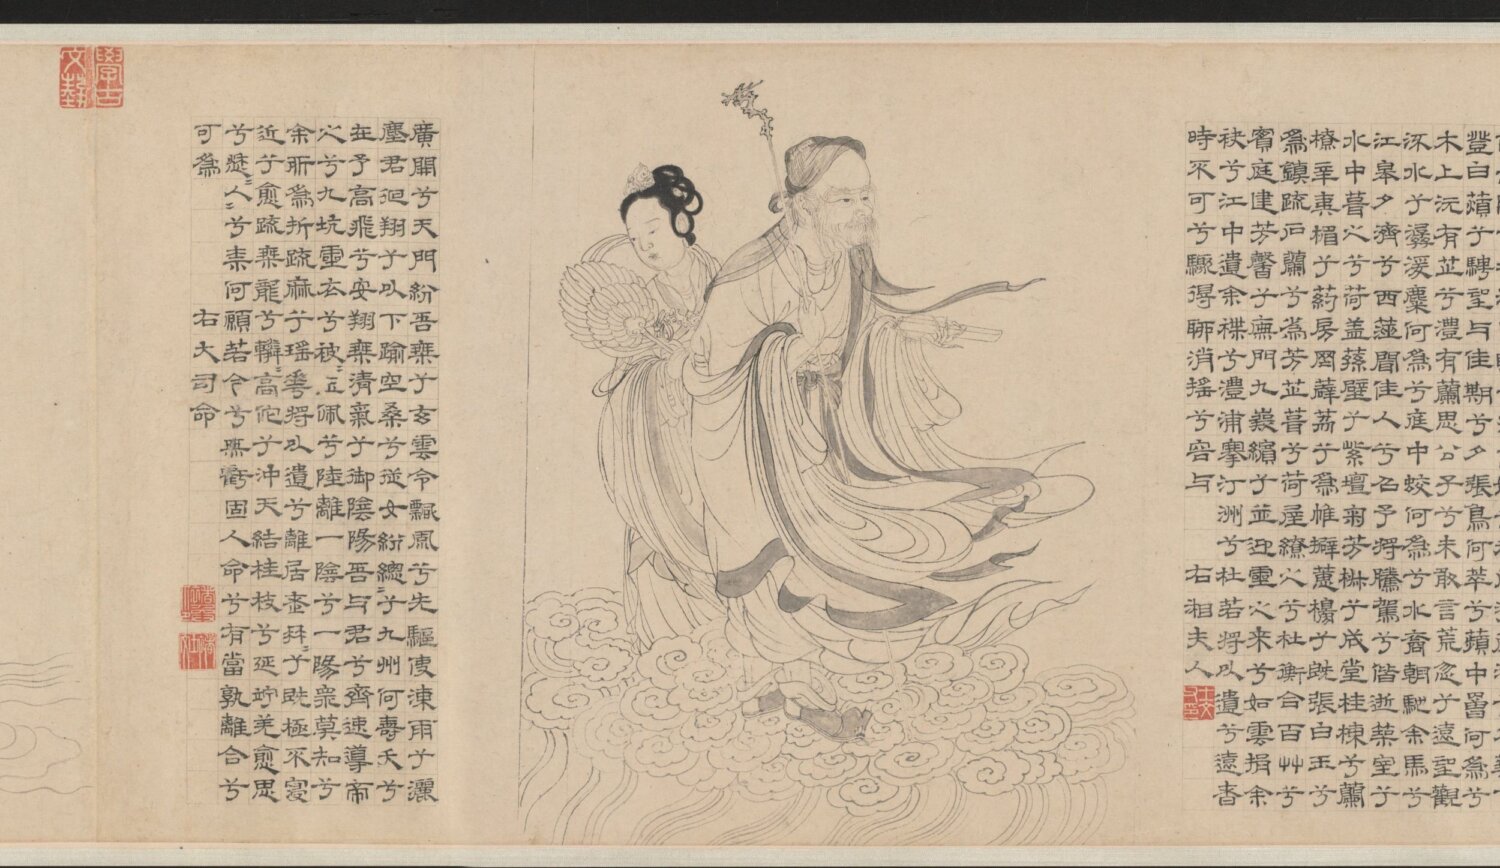 登白薠兮騁望与佳期兮夕張鳥何萃兮蘋中罾何為兮
木上沅有芷兮澧有蘭思公子兮未敢言荒忽兮遠望觀
流水兮潺湲麋何為兮庭中蛟何為兮水裔朝馳余馬兮
江皋夕濟兮西澨聞佳人兮召予將騰駕兮偕逝築室兮
水中葺之兮荷蓋蓀壁兮紫壇匊芳椒兮成堂桂棟兮蘭
橑辛夷楣兮葯房罔薜荔兮為帷擗蕙櫋兮既張白玉兮
為鎮疏石蘭兮為芳芷葺兮荷屋繚之兮杜衡合百艸兮
實庭建芳馨兮廡門九嶷繽兮並迎靈之來兮如雲捐余
袂兮江中遺余褋兮澧浦搴汀洲兮杜若將以遺兮遠者
時不可兮驟得聊消搖兮容与
右相夫人
廣開兮天門紛吾乘兮玄雲令飄風兮先驅使涷雨兮灑
塵君迴翔兮以下踰空桑兮從女紛總〻兮九州何壽夭兮
在予高飛兮安翔乘清氣兮御陰陽吾与君兮齊速導帝
之兮九坑靈衣兮被〻玉佩兮陸離一陰兮一陽眾莫知兮
余所為折疏麻兮瑤華將以遺兮離居老冉〻兮既極不寖
近兮愈疏乘龍兮轔〻高佗兮沖天結桂枝兮延竚羌愈思
兮愁〻人〻兮柰何願若今兮無虧固人命兮有當孰離合兮
可為
右大司命
學古
文藝